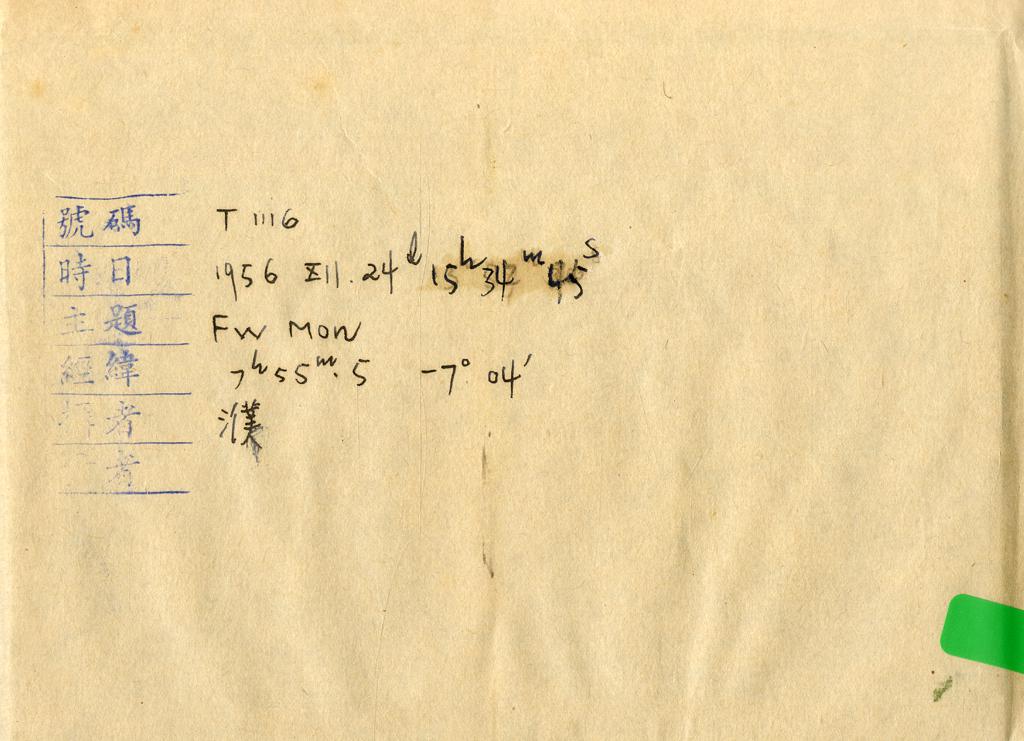 號碼 T 1116
時日 1956 XII. 24d 15h 34m 45s
主題 FW Mon
經緯 7h 55m. 5 -7° 04′
者 濮
者